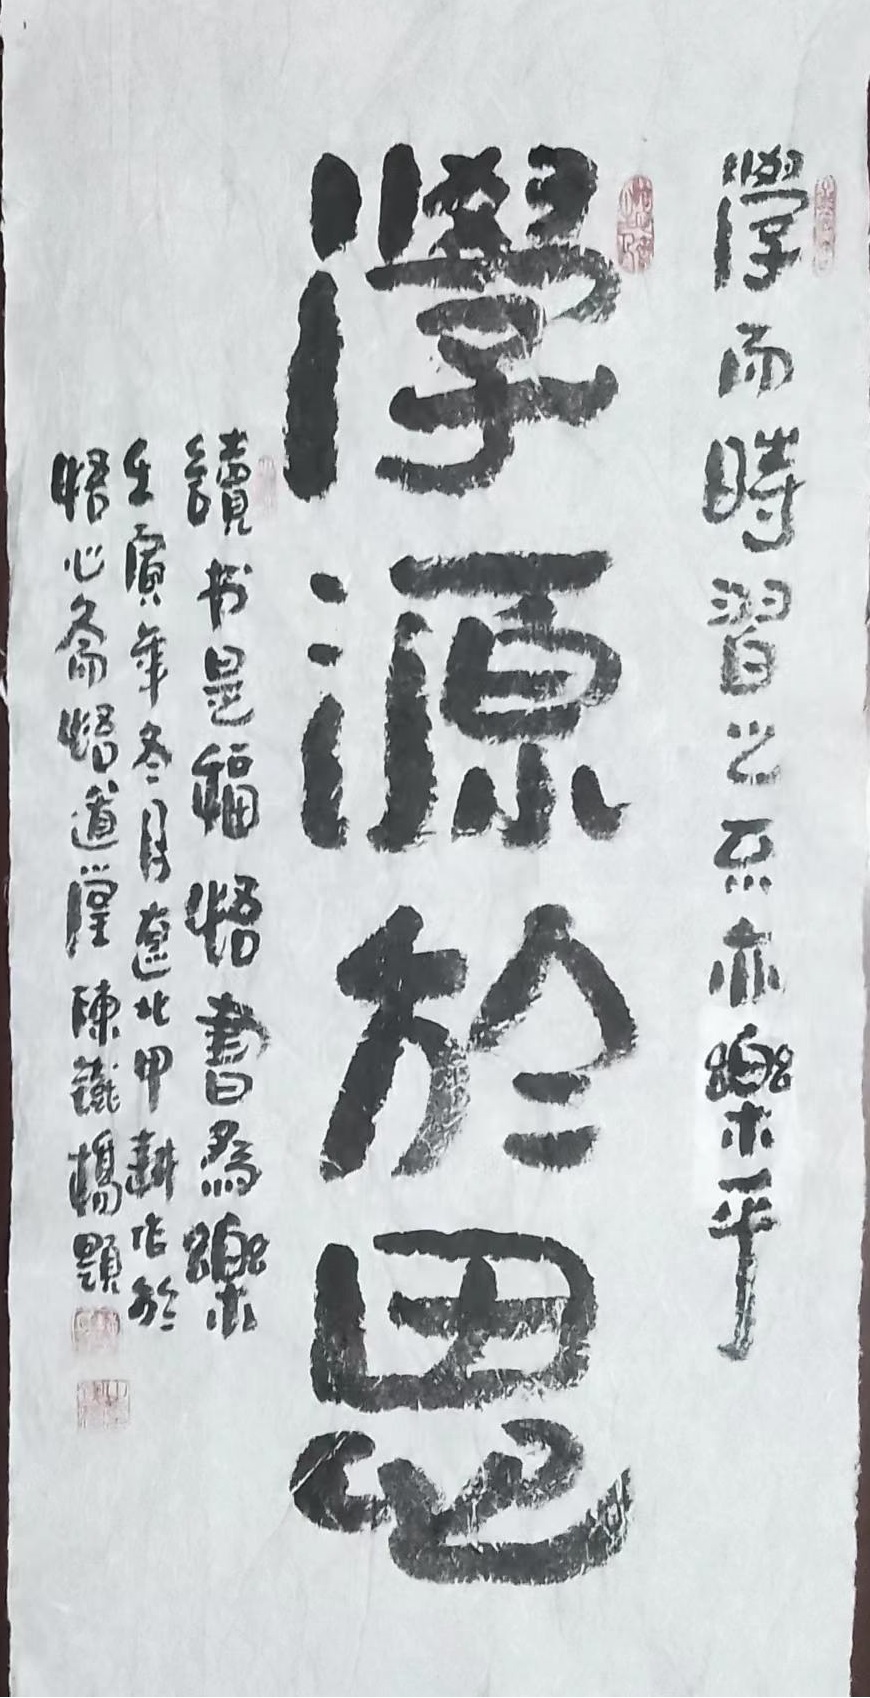 學而時習之不亦樂乎
學源於思
讀书是福悟書為樂
壬寅年冬月遼北甲耕作於
悟心斋悟道堂陳鐵橋題